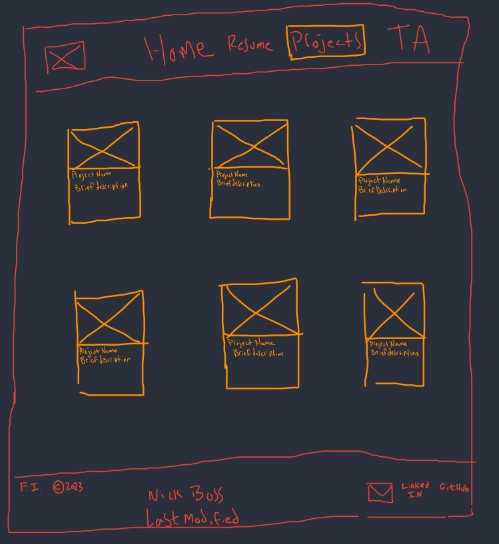 Home Resume Projects TA
Project Name
Brief description
Project Nam
Brief description
Project Name
Brief Description
Project Name
Brief description
Project Name
Brief description
Project Name
Brief description
F.I. ©2023
Nick Boss
Last Modified
Linked IN
GitHub